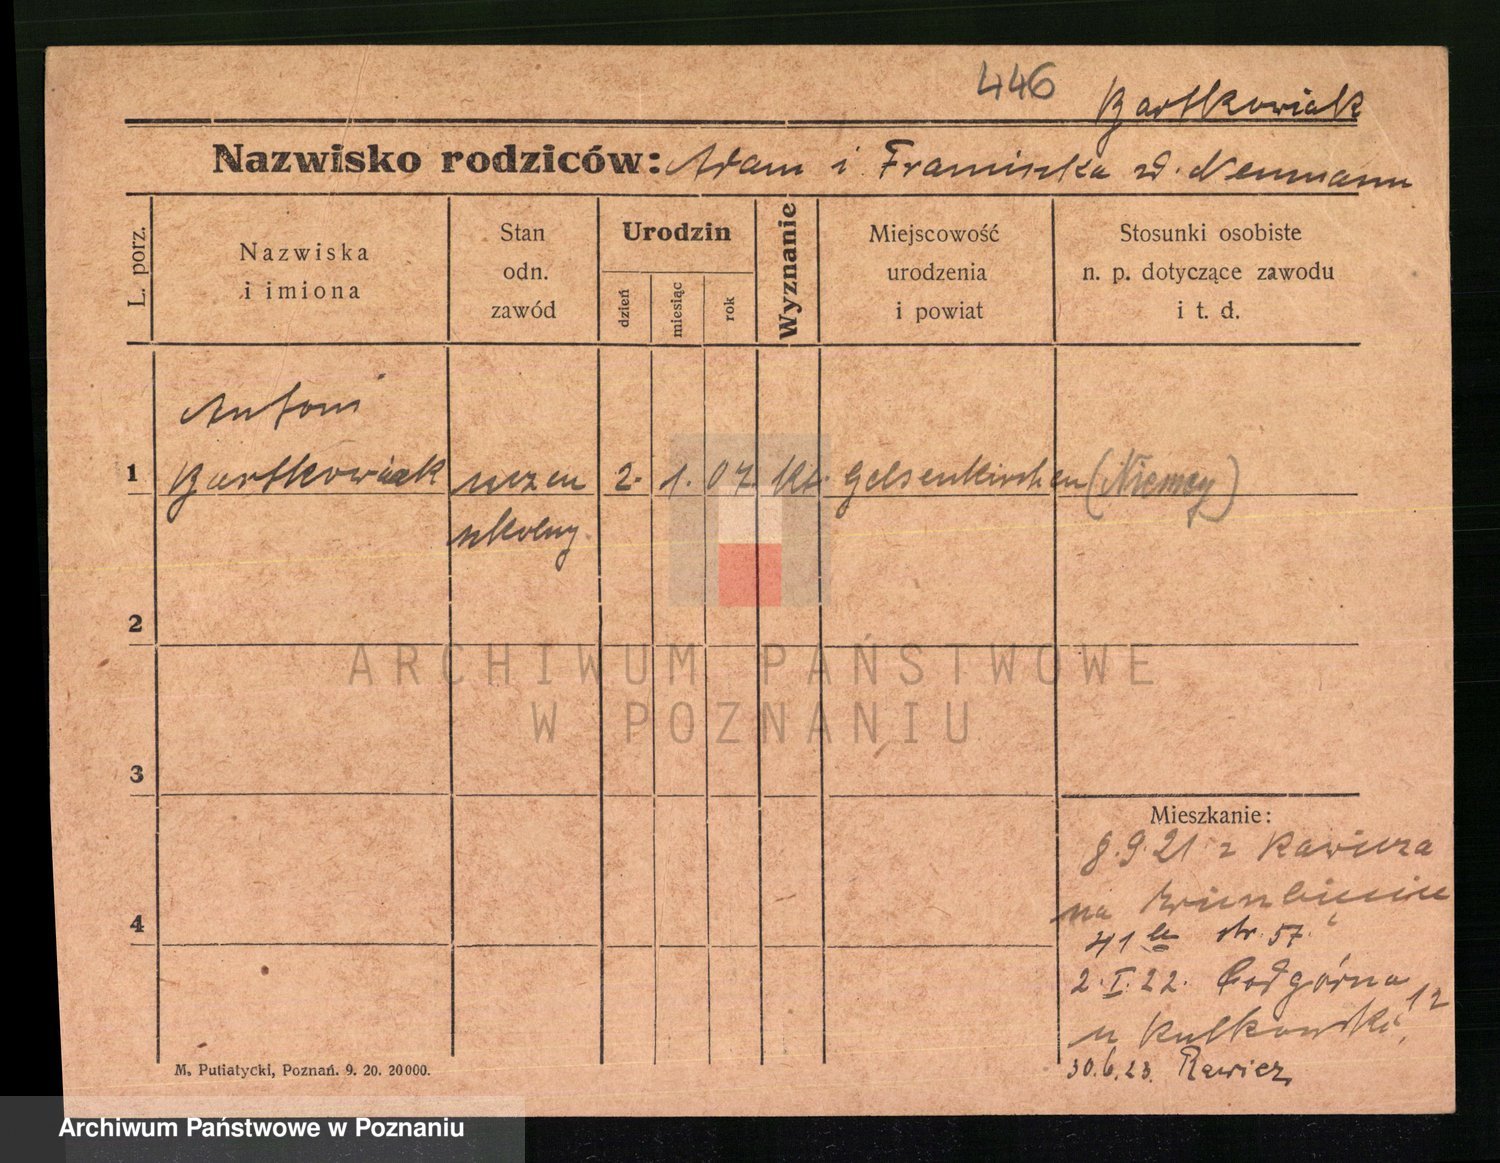 446
Bartkowiak
Nazwisko rodziców: Adam i Franciszka zd. Neumann
L. porz.
Nazwiska
i imiona
Stan
odn.
zawód
Urodzin
dzień
miesiąc
rok
Wyznanie
Miejscowość
urodzenia
i powiat
Stosunki osobiste
n. p. dotyczące zawodu
i t. d.
Antoni
1 Bartkowiak uczeń 2. 1. 07 kt. Gelsenkirchen (Niemcy)
szkolny
2
ARCHIWUM PAŃSTWOWE
W POZNANIU
3
Mieszkanie:
8.9.21 z Rawicza
na
4
41 str. 57.
2.I.22. Podgórna 12
u Kulkowski,
30.6.23. Rawicz
M. Putiatycki, Poznań. 9. 20. 20000.
Archiwum Państwowe w Poznaniu